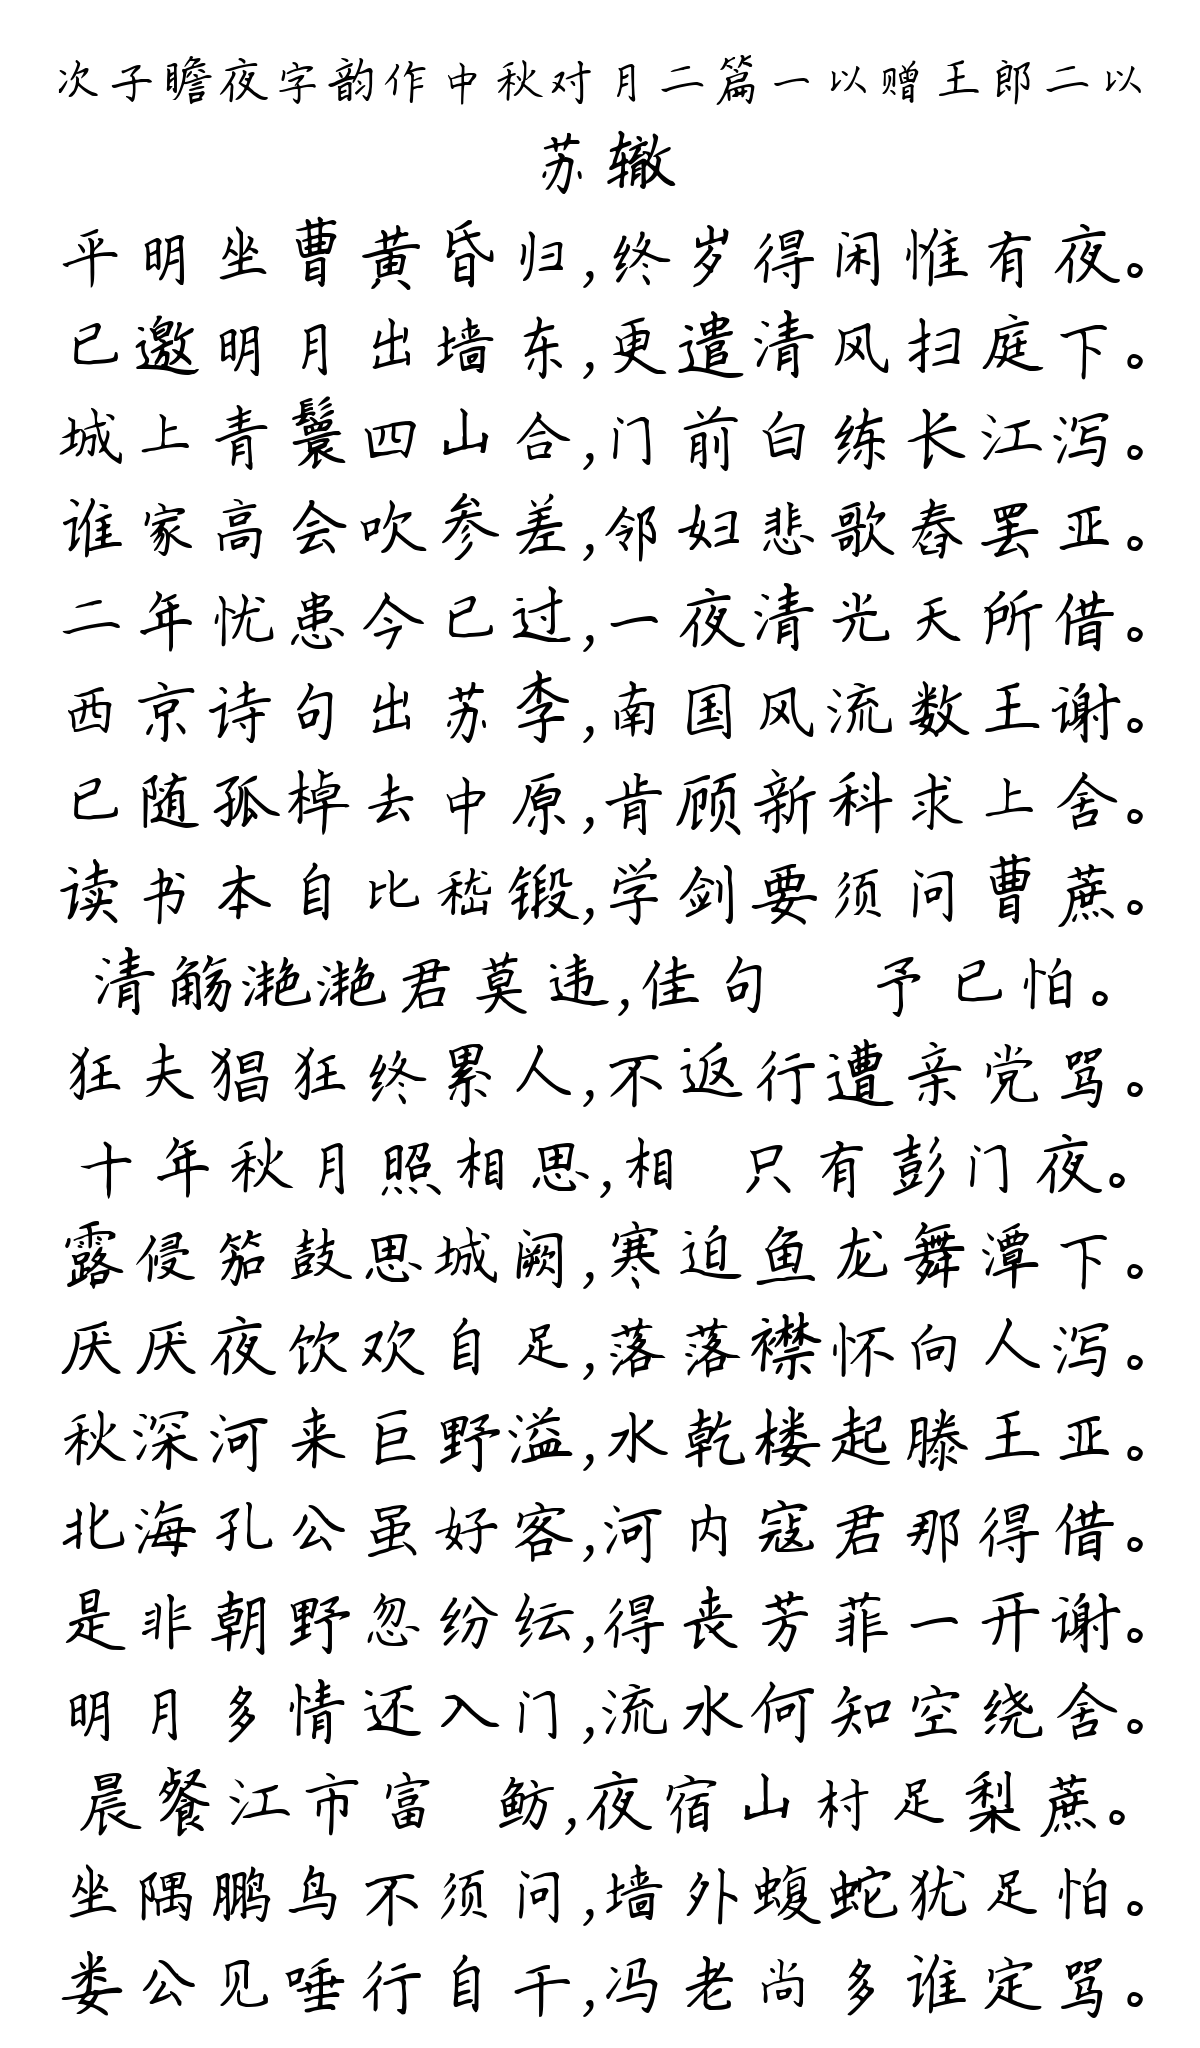 次子瞻夜字韵作中秋对月二篇一以赠王郎二以
苏辙
平明坐曹黄昏归,终岁得闲惟有夜。
已邀明月出墙东,更遣清风扫庭下。
城上青鬟四山合,门前白练长江泻。
谁家高会吹参差,邻妇悲歌舂罢亚。
二年忧患今已过,一夜清光天所借。
西京诗句出苏李,南国风流数王谢。
已随孤棹去中原,肯顾新科求上舍。
读书本自比嵇锻,学剑要须问曹蔗。
清觞滟滟君莫违,佳句 予已怕。
狂夫猖狂终累人,不返行遭亲党骂。
十年秋月照相思,相 只有彭门夜。
露侵笳鼓思城阙,寒迫鱼龙舞潭下。
厌厌夜饮欢自足,落落襟怀向人泻。
秋深河来巨野溢,水乾楼起滕王亚。
北海孔公虽好客,河内寇君那得借。
是非朝野忽纷纭,得丧芳菲一开谢。
明月多情还入门,流水何知空绕舍。
晨餐江市富 鲂,夜宿山村足梨蔗。
坐隅鹏鸟不须问,墙外蝮蛇犹足怕。
娄公见唾行自干,冯老尚多谁定骂。